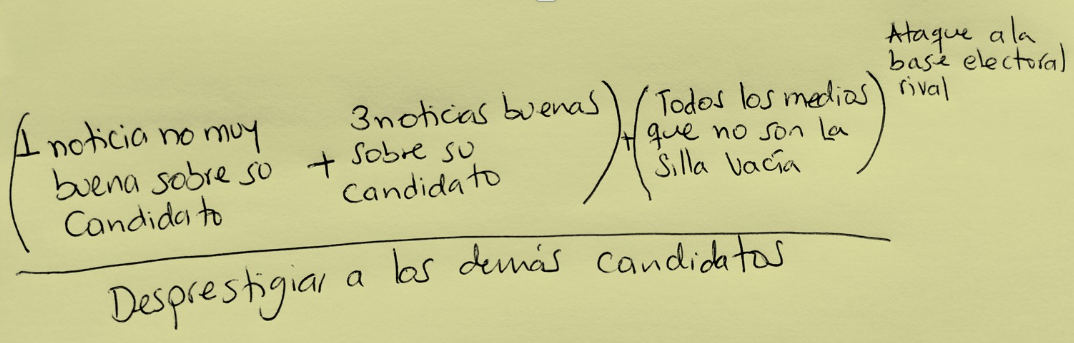 (1 noticia no muy
buena sobre so
Candidato
+
3 noticias buenas)
sobre su
candidato
+
(Todos los medios)
que no son la
Silla Vacía
Ataque a la
base electoral
rival
Desprestigiar a los demás candidatos